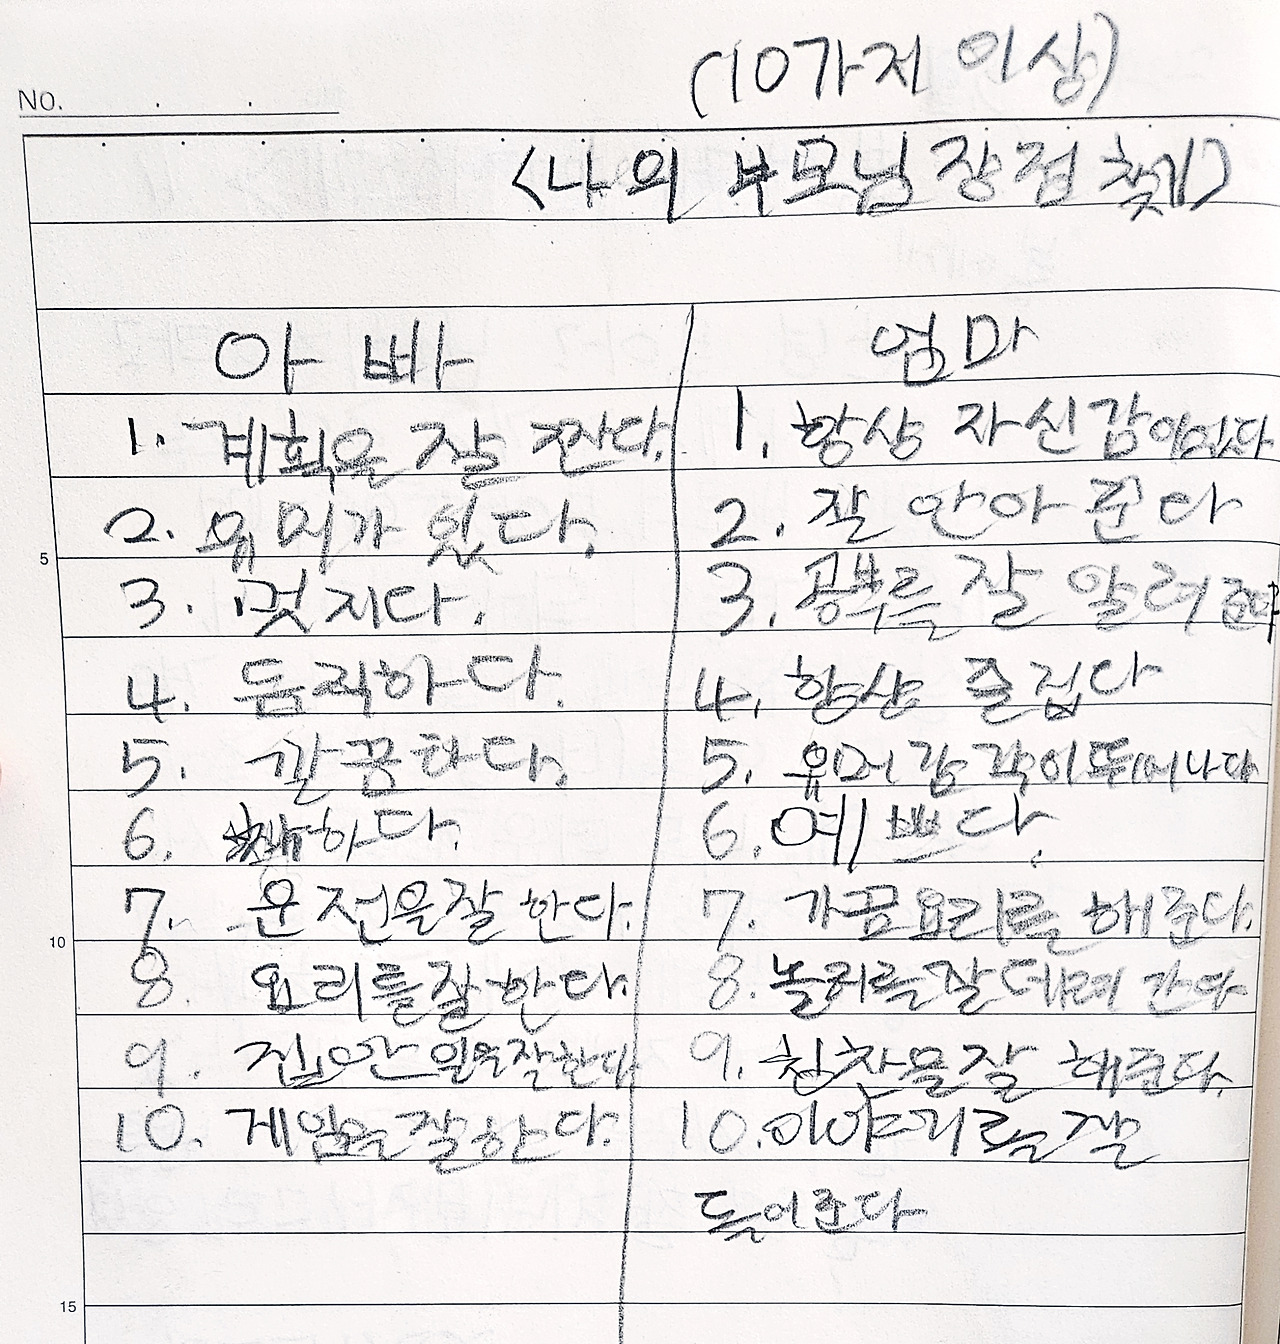 (10가지 이상)
NO.
<나의 부모님 장점 찾기>
아빠
1. 계획을 잘 짠다.
2. 유머가 있다.
3. 멋지다.
4. 듬직하다.
5. 깔끔하다.
6. 착하다.
7. 운전을 잘 한다.
8. 요리를 잘 한다.
9. 집안 일을 잘한다
10. 게임을 잘한다.
엄마
1. 항상 자신감이있다
2. 잘 안아 준다
3. 공부를 잘 알려 준다
4. 항상 즐겁다
5. 유머 감각이 뛰어나다
6. 예쁘다.
7. 가끔 요리를 해준다.
8. 놀러를 잘 데려 간다
9. 칭찬을 잘 해준다.
10. 이야기를 잘
들어준다
5
10
15